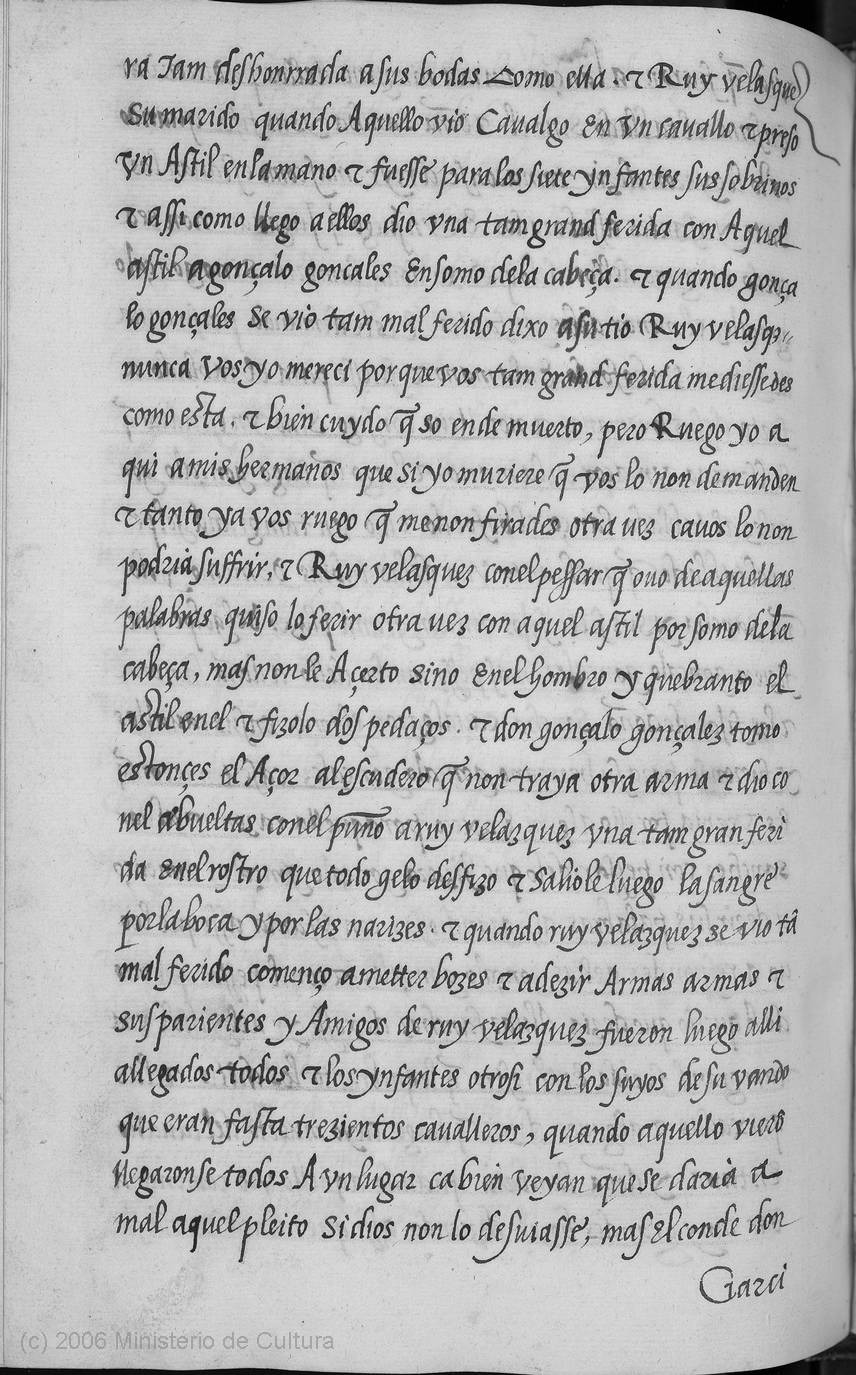 ra Tam deshonrrada a sus bodas Como ella . τ Ruy velasquez
Su marido quando Aquello vio Cavalgo En Vn cavallo τ preso
Vn Astil en la mano τ fuesse para los siete ynfantes sus sobrinos
τ assi como llego a ellos dio vna tam grand ferida con Aquel
astil a gonçalo goncales En somo de la cabeça. τ quando gonça
lo gonçales Se vio tam mal ferido dixo a su tio Ruy velasqz
nunca Vos yo mereci por que vos tam grand ferida me diessedes
como esta. τ bien cuydo q̃ so ende muerto, pero Ruego yo a
qui a mis hermanos que si yo muriere q̃ vos lo non demanden
τ tanto ya vos ruego q̃ me non firades otra vez ca vos lo non
podria suffrir, τ Ruy velasquez con el pessar q̃ ouo de aquellas
palabras quiso lo ferir otra vez con aquel astil por somo dela
cabeça, mas non le Açerto Sino En el hombro y quebranto el
astil en el τ fizolo dos pedaços. τ don gonçalo gonçalez tomo
estonçes el Açor al escudero q̃ non traya otra arma τ dio co
nel abueltas con el puño a ruy velazquez vna tam gran feri
da En el rostro que todo gelo desfizo τ Saliole luego la sangre
por la boca y por las narizes. τ quando ruy velazquez se vio tã
mal ferido començo a metter bozes τ a dezir Armas armas τ
Sus parientes y Amigos de ruy velazquez fueron luego alli
allegados todos τ los ynfantes otrosi con los suyos de su vando
que eran fasta trezientos cavalleros, quando aquello vierõ
llegaronse todos A vn lugar ca bien veyan que se daria a
mal aquel pleito Si dios non lo desuiasse, mas El conde don
Garci
(c) 2006 Ministerio de Cultura